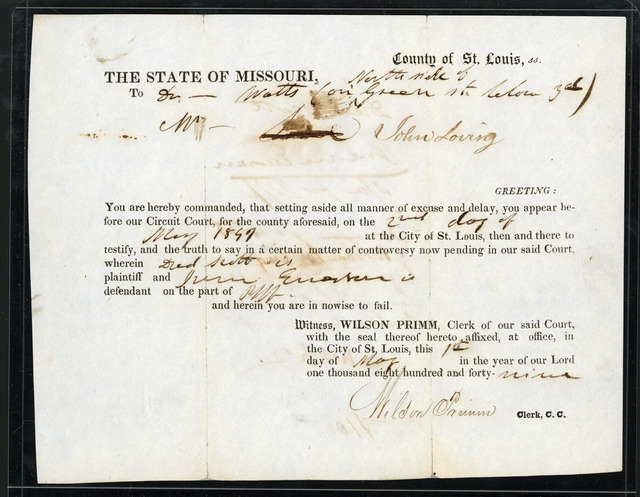 County of St. Louis, ss.
THE STATE OF MISSOURI,
North side of
To Dr. — Watts (on Green st. below 3d)
Mr — John Loving
GREETING:
You are hereby commanded, that setting aside all manner of excuse and delay, you appear be-
fore our Circuit Court, for the county aforesaid, on the 2nd day of
May 1849 at the City of St. Louis, then and there to
testify, and the truth to say in a certain matter of controversy now pending in our said Court,
wherein Dred Scott is
plaintiff and Irene Emerson is
defendant on the part of Plff.
and herein you are in nowise to fail.
Witness, WILSON PRIMM, Clerk of our said Court,
with the seal thereof hereto affixed, at office, in
the City of St. Louis, this 1st
day of May in the year of our Lord
one thousand eight hundred and forty-nine
Wilson Primm Clerk, C. C.